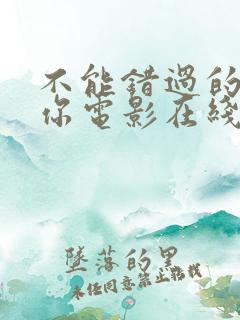 不能错过的
你电影在线
墜落的星
未经同意禁止转载